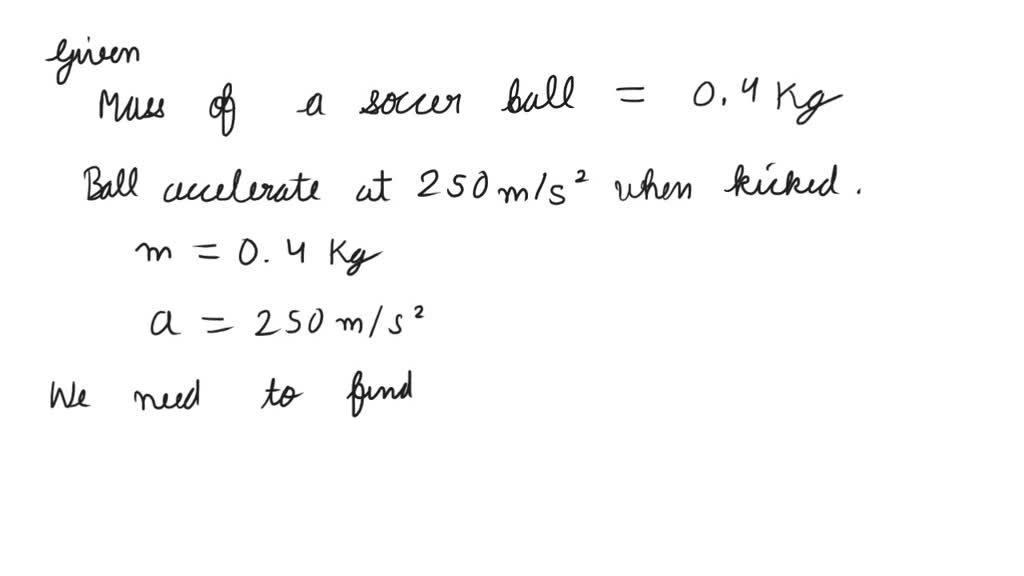 Given
Mass of a soccer ball = 0.4 Kg
Ball accelerate at 250 m/s² when kicked.
m = 0.4 Kg
a = 250 m/s²
We need to find